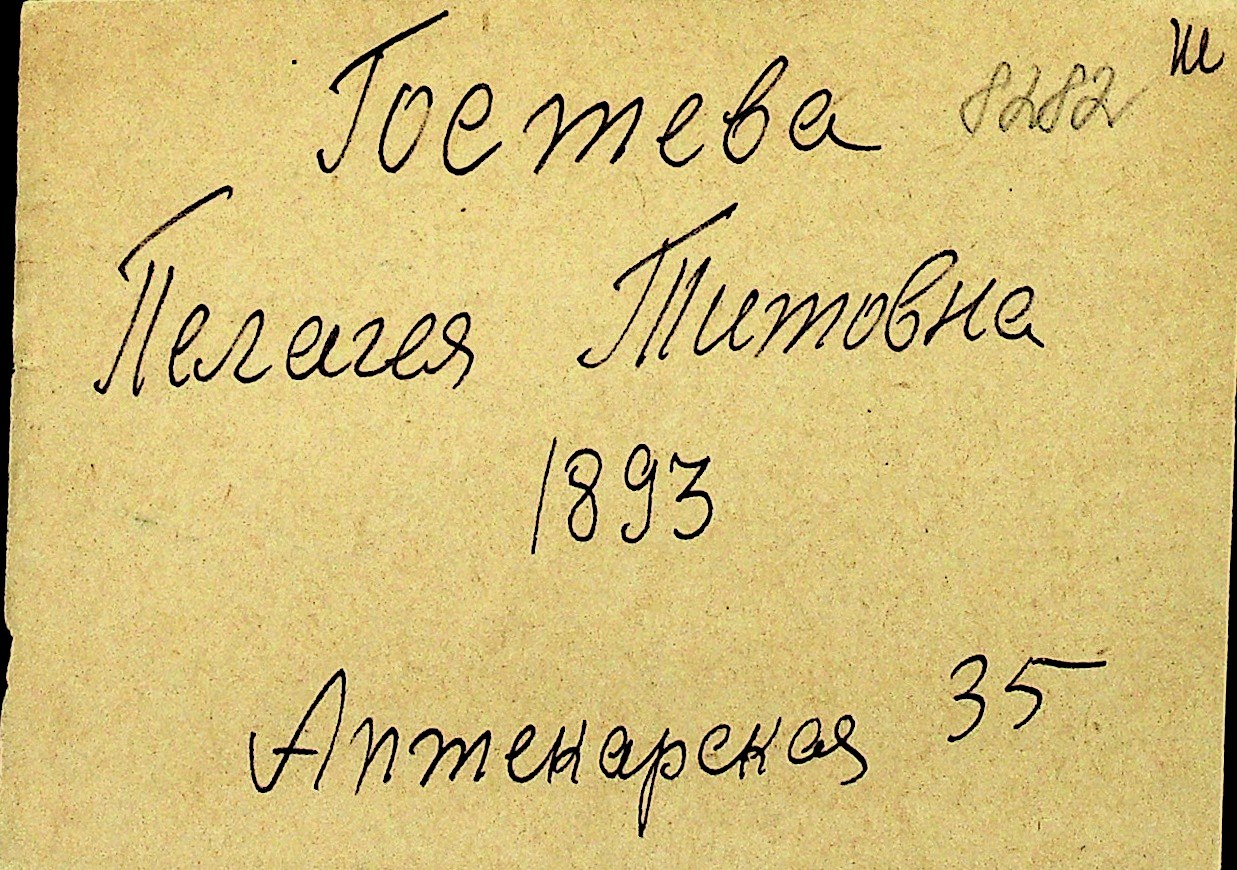 Гостева 8282 Ш
Пелагея Титовна
1893
Аптекарская 35